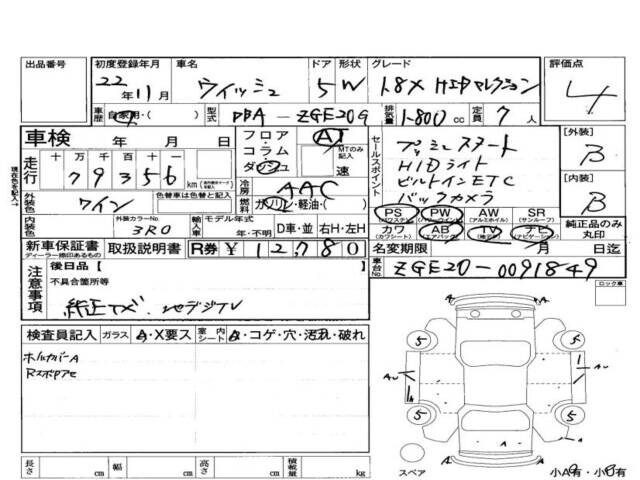 出品番号
初度登録年月
22年11月
車名
ウイッシュ
ドア
5
形状
W
グレード
1.8X HIDセレクション
評価点
4
車歴
自家用・( )
型式
DBA-ZGE20G
排気量
1800cc
定員
7人
車検 年 月 日
走行
十 万 千 百 十 一
79356 km
フロア・コラム・ダッシュ
AT
MTのみ記入
速
外装色
ワイン
色替車は色替と記入
冷房
AAC
燃料
ガソリン・軽油・( )
内装色
外装カラーNo.
3R0
輸入車
モデル年式
年・不明
D車・並
右H・左H
セールスポイント
プッシュスタート
HIDライト
ビルトインETC
バックカメラ
PS PW AW SR
(パワステ) (パワーウインド) (アルミホイル) (サンルーフ)
カワ AB TV ナビ
(カワシート) (エアバッグ) (ナビゲーション)
【外装】
B
【内装】
B
純正品のみ丸印
新車保証書
ディーラー捺印あるもの
取扱説明書
R券 ¥12,780
名変期限 月 日迄
車台No.
ZGE20-0091849
注意事項
後日品【 】
不具合箇所等
純正TV 地デジTV
ロック車
検査員記入
ガラス
A・X要ス
室内シート
A・コゲ・穴・汚れ・破れ
ホイルカバーA
5 5
5 5
A
スペア
小A有・小B有
長さ cm
幅 cm
高さ cm
積載量 kg